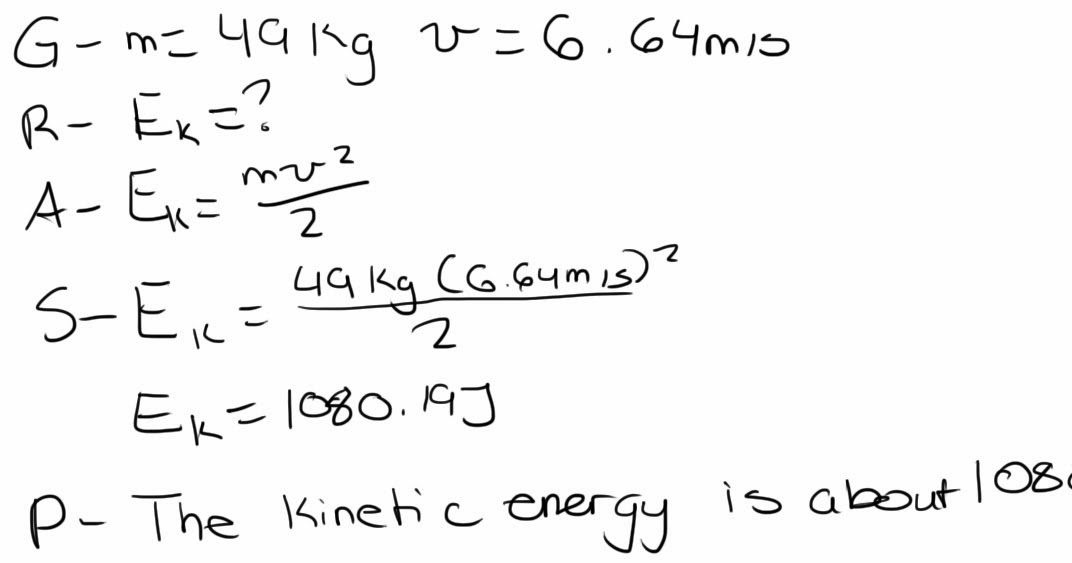 G - m = 49 kg v = 6.64 m/s
R - Ek = ?
A - Ek = mv²/2
S - Ek = 49 kg (6.64 m/s)²/2
Ek = 1080.19 J
P - The kinetic energy is about 1080